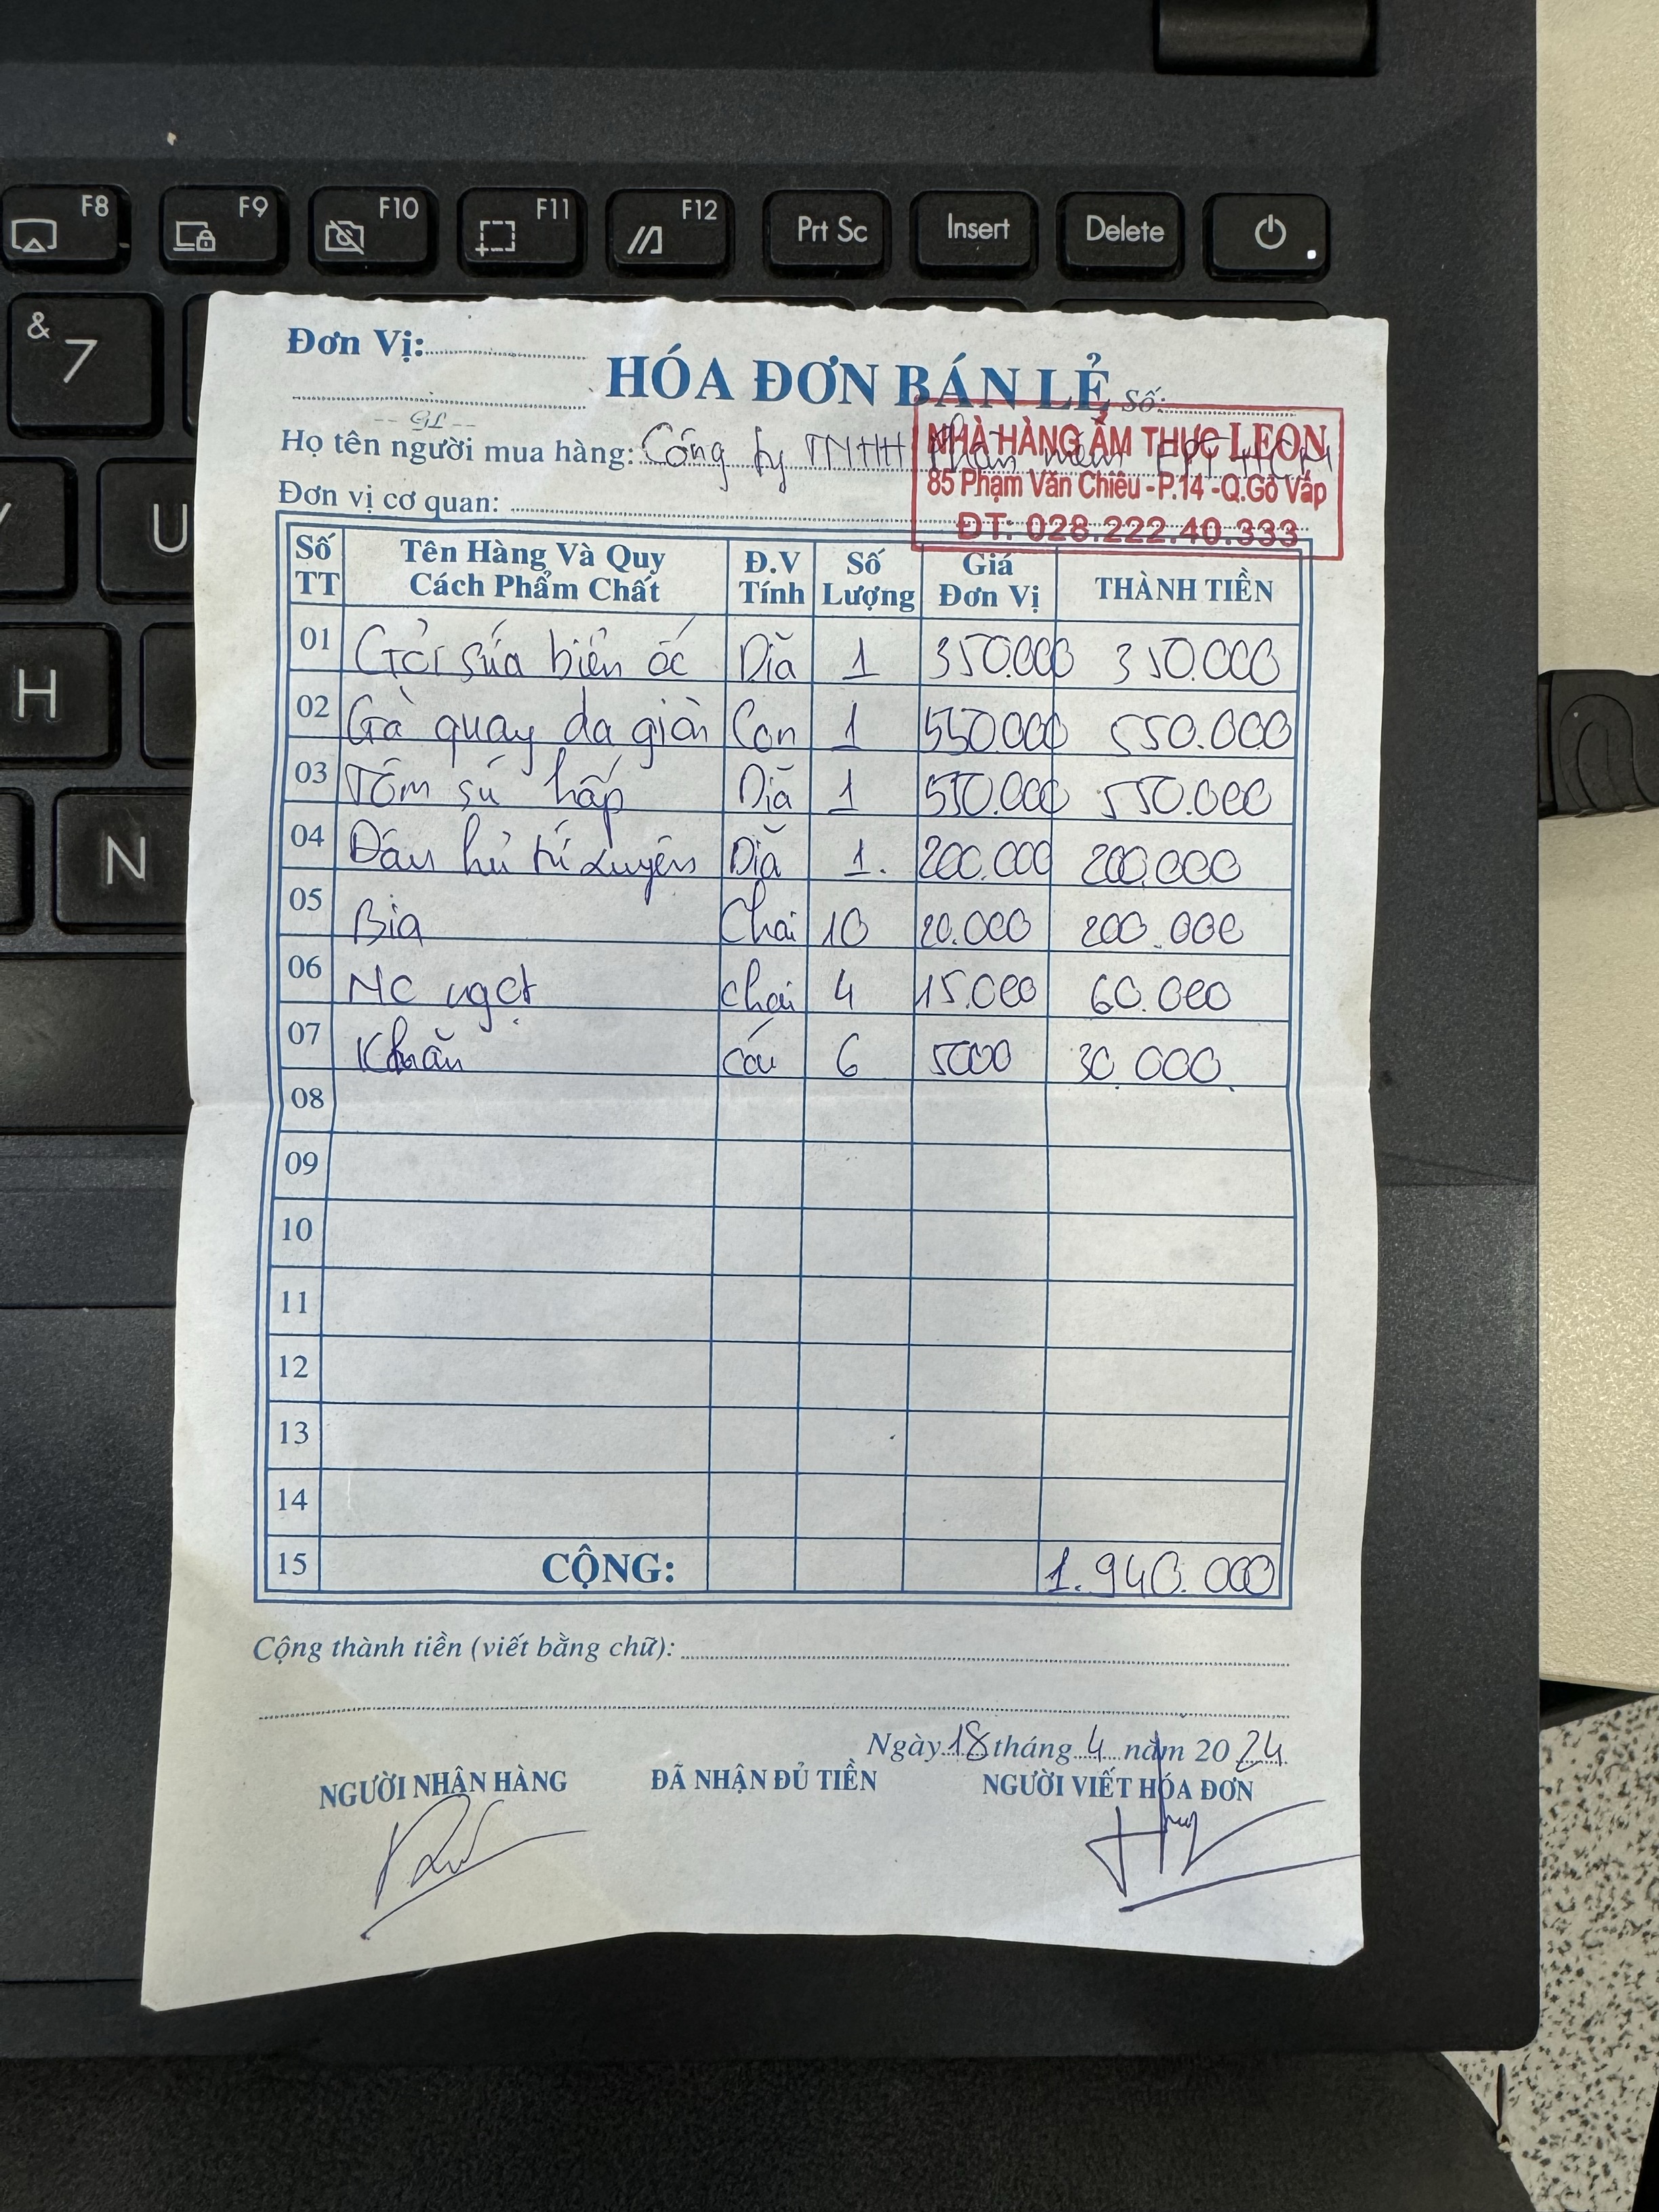 F8
F9
F10
F11
F12
Prt Sc
Insert
Delete
&
7
U
H
N
Đơn Vị:
HÓA ĐƠN BÁN LẺ Số:
-- GL --
Họ tên người mua hàng: Công ty TNHH Phần mềm FPT HCM
NHÀ HÀNG ẨM THỰC LEON
85 Phạm Văn Chiêu - P.14 - Q.Gò Vấp
ĐT: 028.222.40.333
Đơn vị cơ quan:
Số TT Tên Hàng Và Quy Cách Phẩm Chất Đ.V Tính Số Lượng Giá Đơn Vị THÀNH TIỀN
01 Gỏi sứa biển ốc Dĩa 1 350.000 350.000
02 Gà quay da giòn Con 1 550.000 550.000
03 Tôm sú hấp Dĩa 1 550.000 550.000
04 Đậu hủ tứ xuyên Dĩa 1. 200.000 200.000
05 Bia Chai 10 20.000 200.000
06 Nc ngọt chai 4 15.000 60.000
07 Khăn cái 6 5000 30.000
08
09
10
11
12
13
14
15 CỘNG: 1.940.000
Cộng thành tiền (viết bằng chữ):
Ngày 18 tháng 4 năm 20 24
NGƯỜI NHẬN HÀNG ĐÃ NHẬN ĐỦ TIỀN NGƯỜI VIẾT HÓA ĐƠN